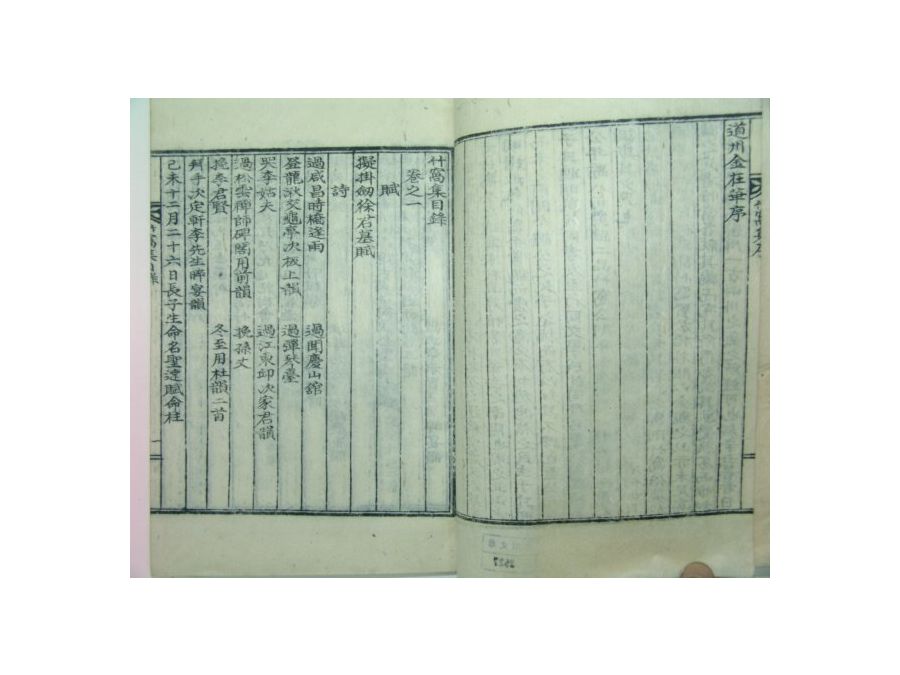 道州金在華序
竹窩集目錄
卷之一
賦
擬掛劒徐君墓賦
詩
過咸昌時橋逢雨
過聞慶山舘
登龍湫交龜亭次板上韻
過彈琴臺
哭李姑夫
過江東邱次家君韻
過松雲禪師碑閣用前韻
挽孫丈
挽李君賢
冬至用杜韻二首
拜手次定軒李先生晬宴韻
己未十二月二十六日長子生命名聖逵賦侖柱
竹窩集目錄
2527